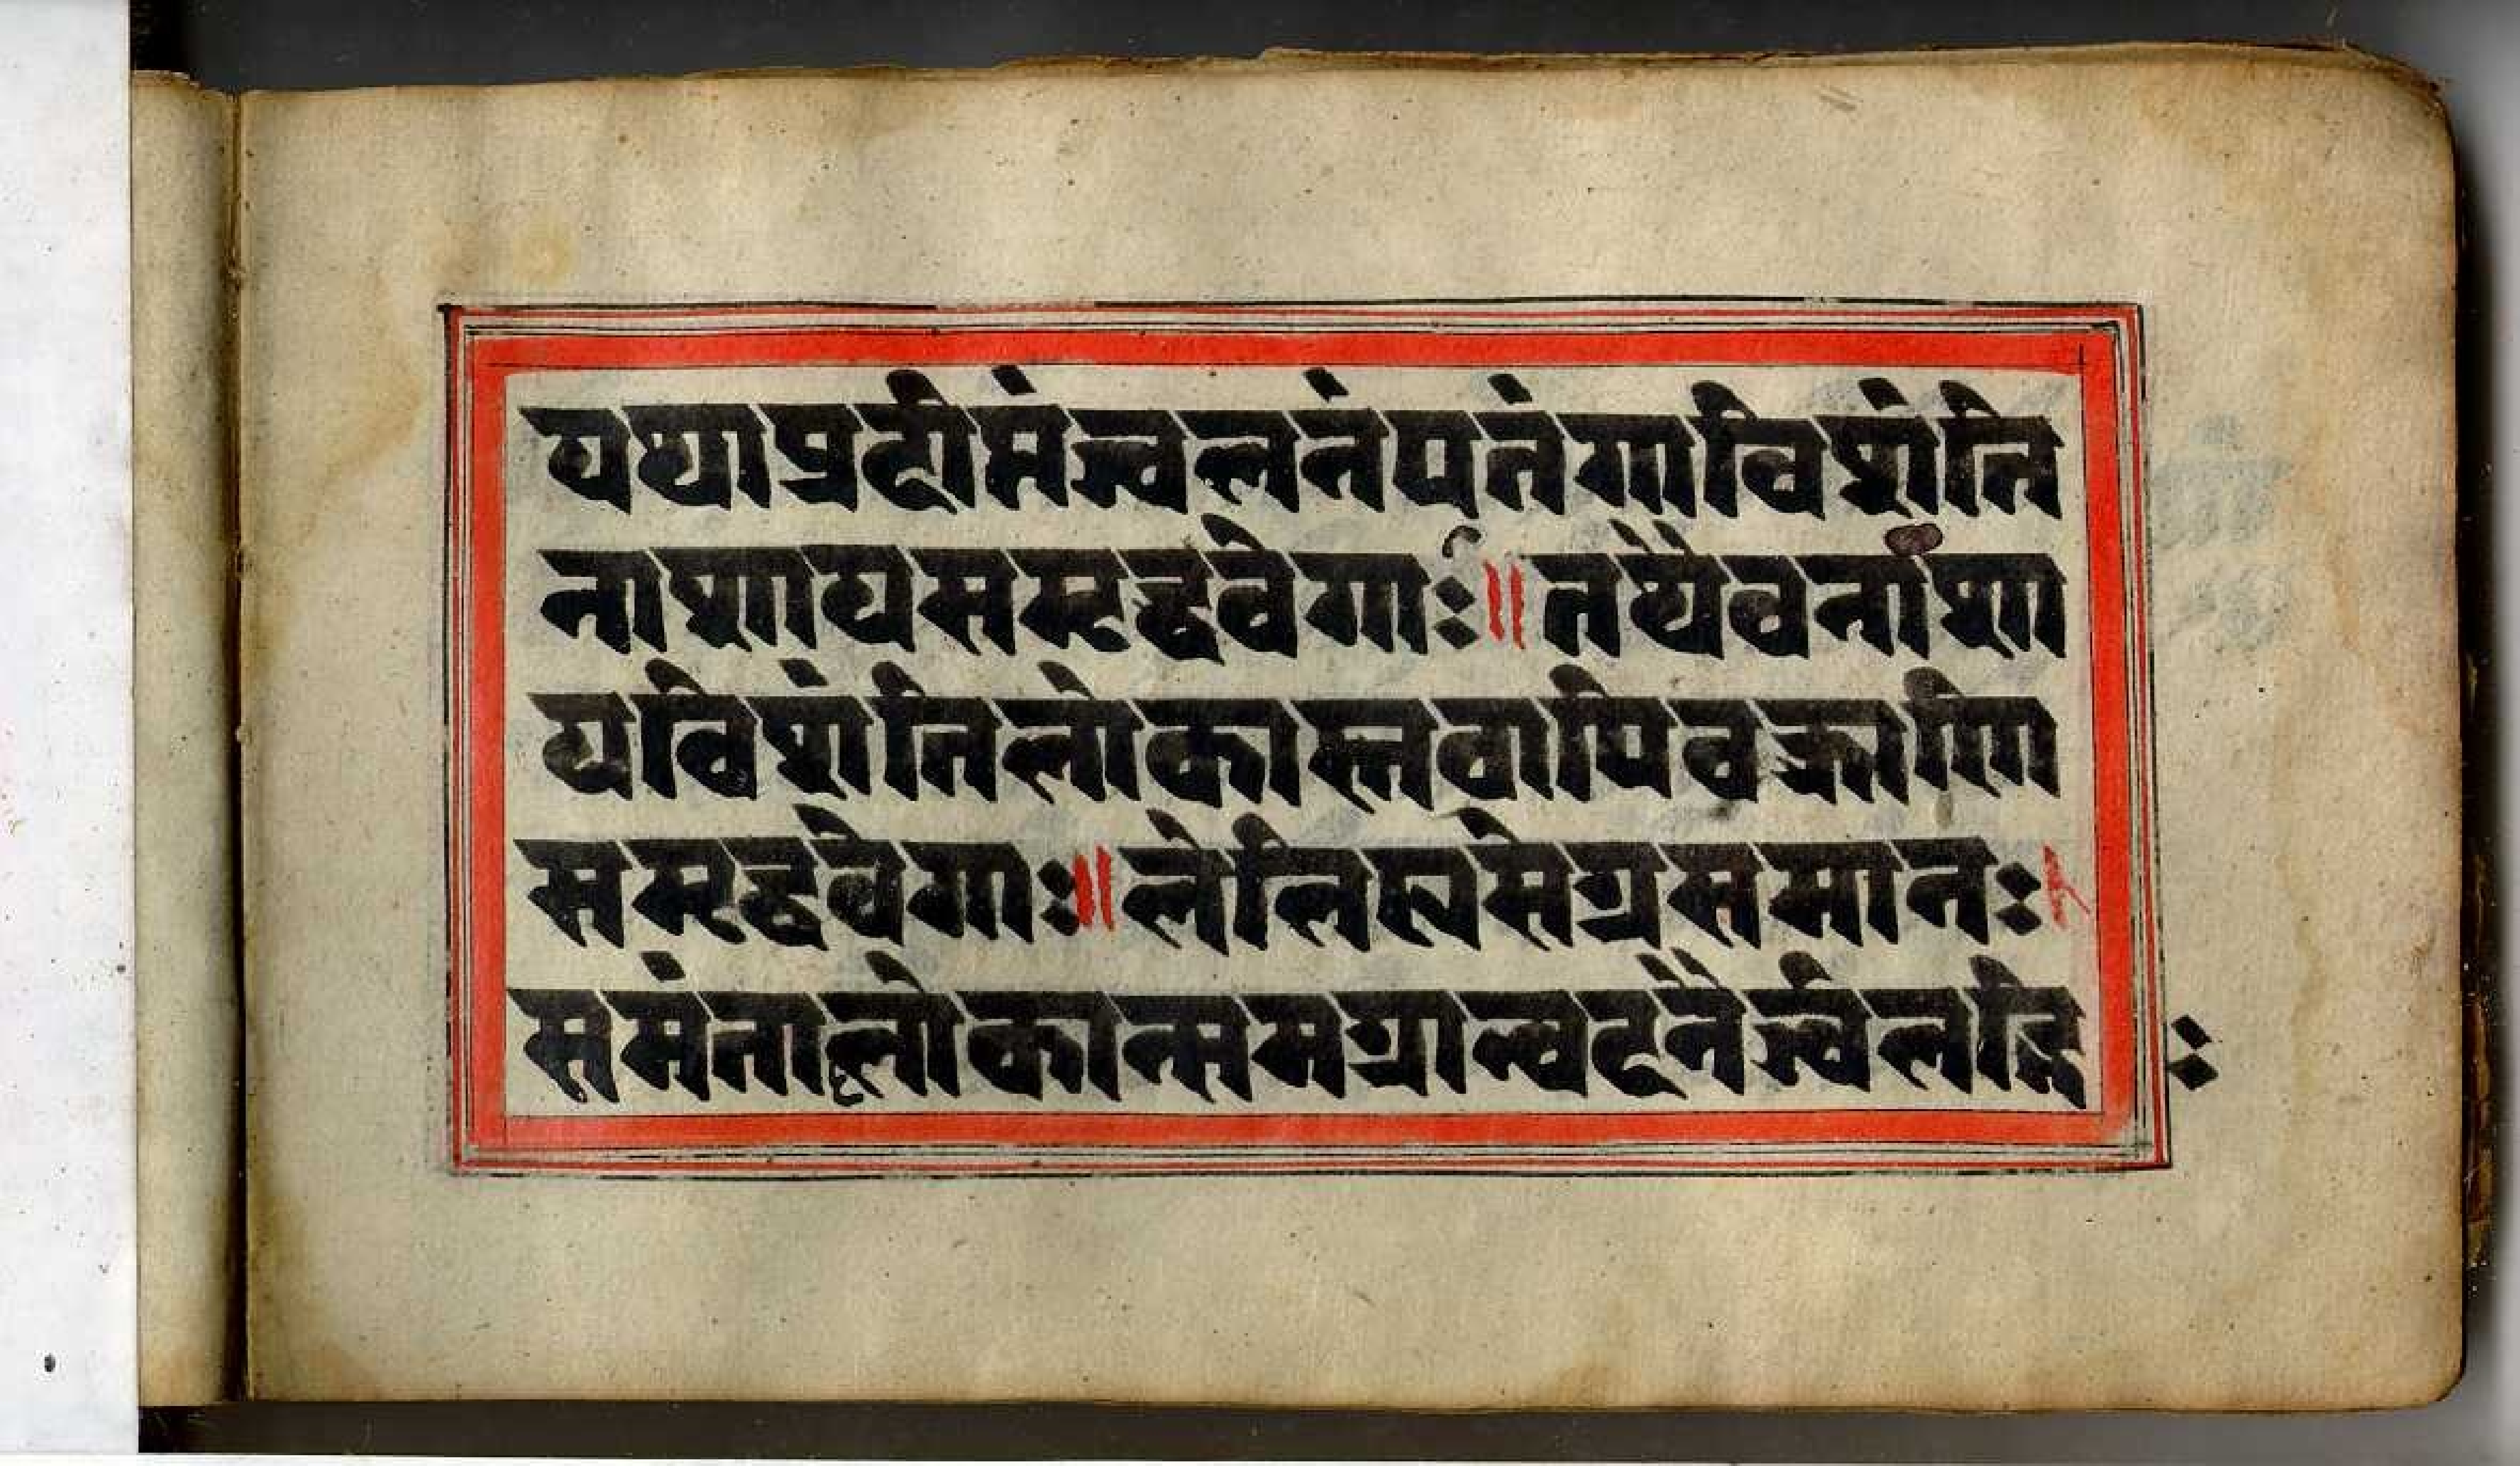 यथाप्रदीप्तंज्वलनंपतंगाविशंति
नाशायसमृद्धवेगाः॥तथैवनाशा
यविशंतिलोकास्तवापिवक्त्राणि
समृद्धवेगाः॥लेलिह्यसेग्रसमानः
समंताल्लोकान्समग्रान्वदनैर्ज्वलद्भि
ः